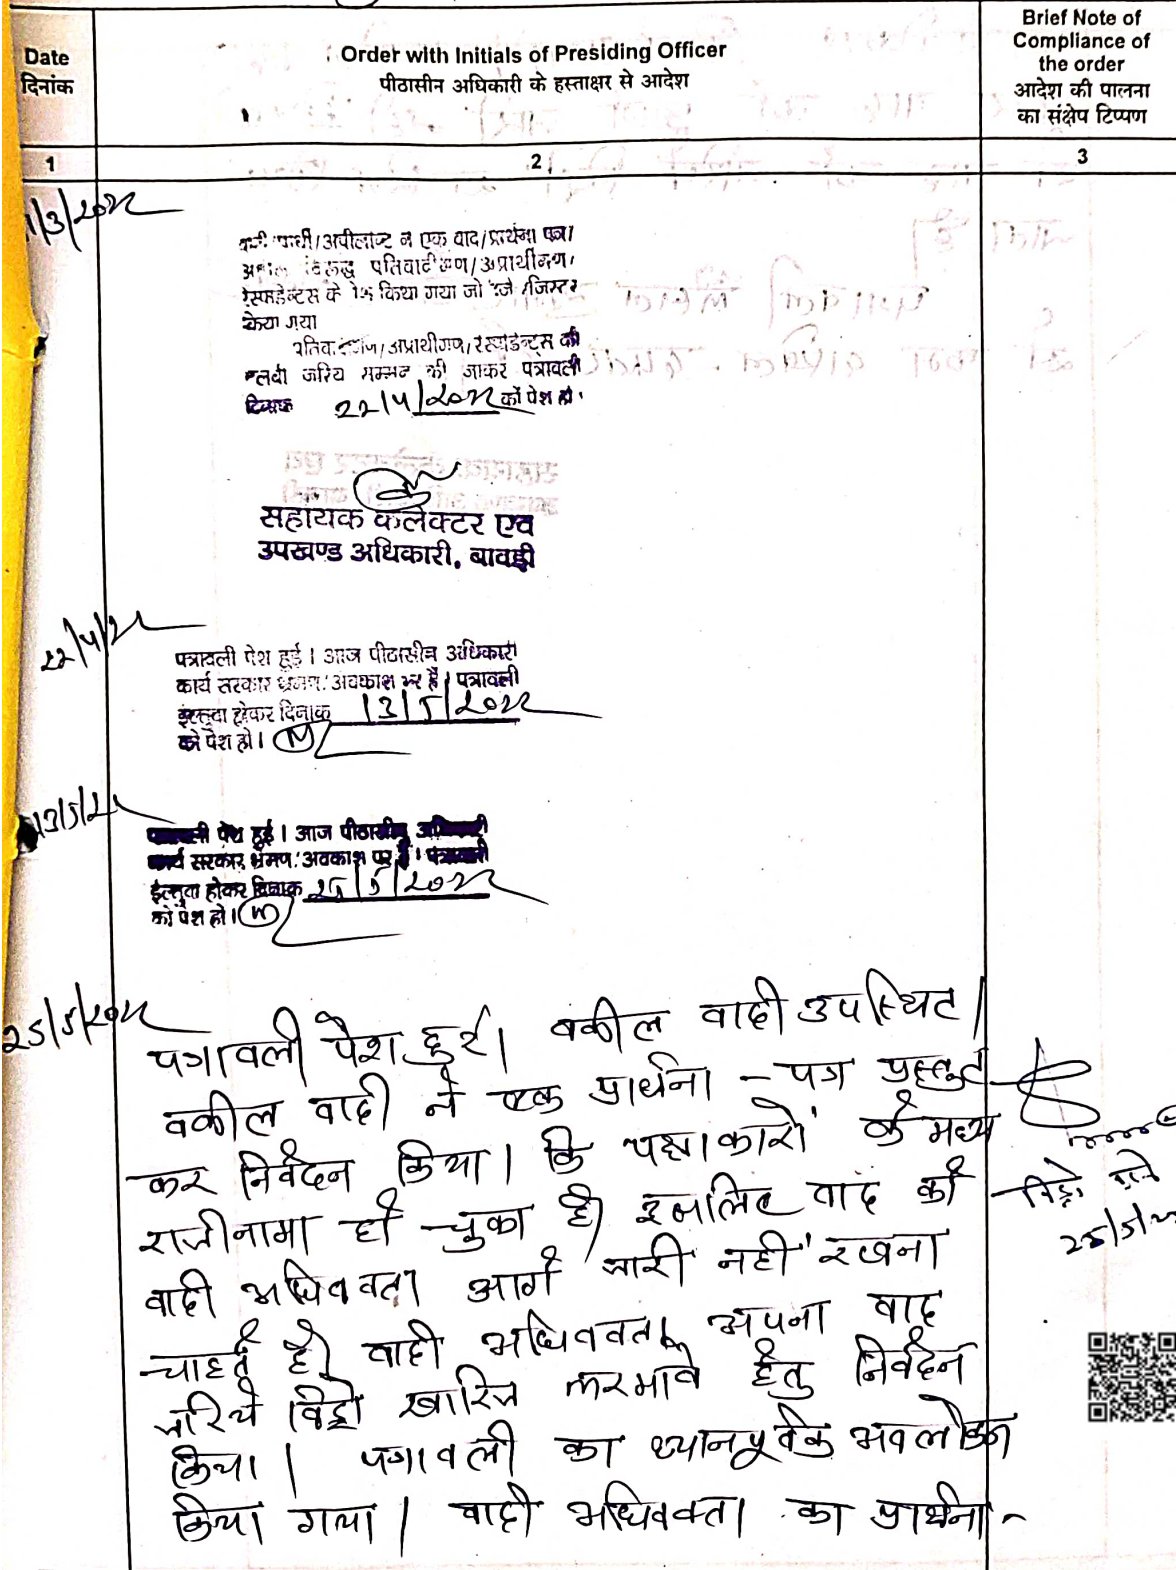 Date
दिनांक
Order with Initials of Presiding Officer
पीठासीन अधिकारी के हस्ताक्षर से आदेश
Brief Note of
Compliance of
the order
आदेश की पालना
का संक्षेप टिप्पण
1
2
3
1/3/2022
प्रार्थी/अपीलान्ट ने एक वाद/प्रार्थना पत्र/
विरुद्ध प्रतिवादीगण/अप्रार्थीगण/
रेस्पोडेन्टस के पेश किया गया जो दर्ज रजिस्टर
किया गया
प्रतिवादीगण/अप्रार्थीगण/रेस्पोडेन्ट्स की
तलबी जरिये सम्मन की जाकर पत्रावली
दिनांक 22/4/2022 को पेश हो।
सहायक कलेक्टर एवं
उपखण्ड अधिकारी, बावड़ी
22/4/22
पत्रावली पेश हुई। आज पीठासीन अधिकारी
कार्य सरकार भ्रमण/अवकाश पर हैं। पत्रावली
ईल्तुवा होकर दिनांक 13/5/2022
को पेश हो।
13/5/22
पत्रावली पेश हुई। आज पीठासीन अधिकारी
कार्य सरकार भ्रमण/अवकाश पर हैं। पत्रावली
ईल्तुवा होकर दिनांक 25/5/2022
को पेश हो।
25/5/2022
पत्रावली पेश हुई। वकील वादी उपस्थित।
वकील वादी ने एक प्रार्थना-पत्र प्रस्तुत
कर निवेदन किया। कि पक्षकारों के मध्य
राजीनामा हो चुका है। इसलिए वाद को
वादी अधिवक्ता आगे जारी नहीं रखना
चाहते है। वादी अधिवक्ता अपना वाद
जरिये विड्रो खारिज फरमावे हेतु निवेदन
किया। पत्रावली का ध्यानपूर्वक अवलोकन
किया गया। वादी अधिवक्ता का प्रार्थना-
25/5/22